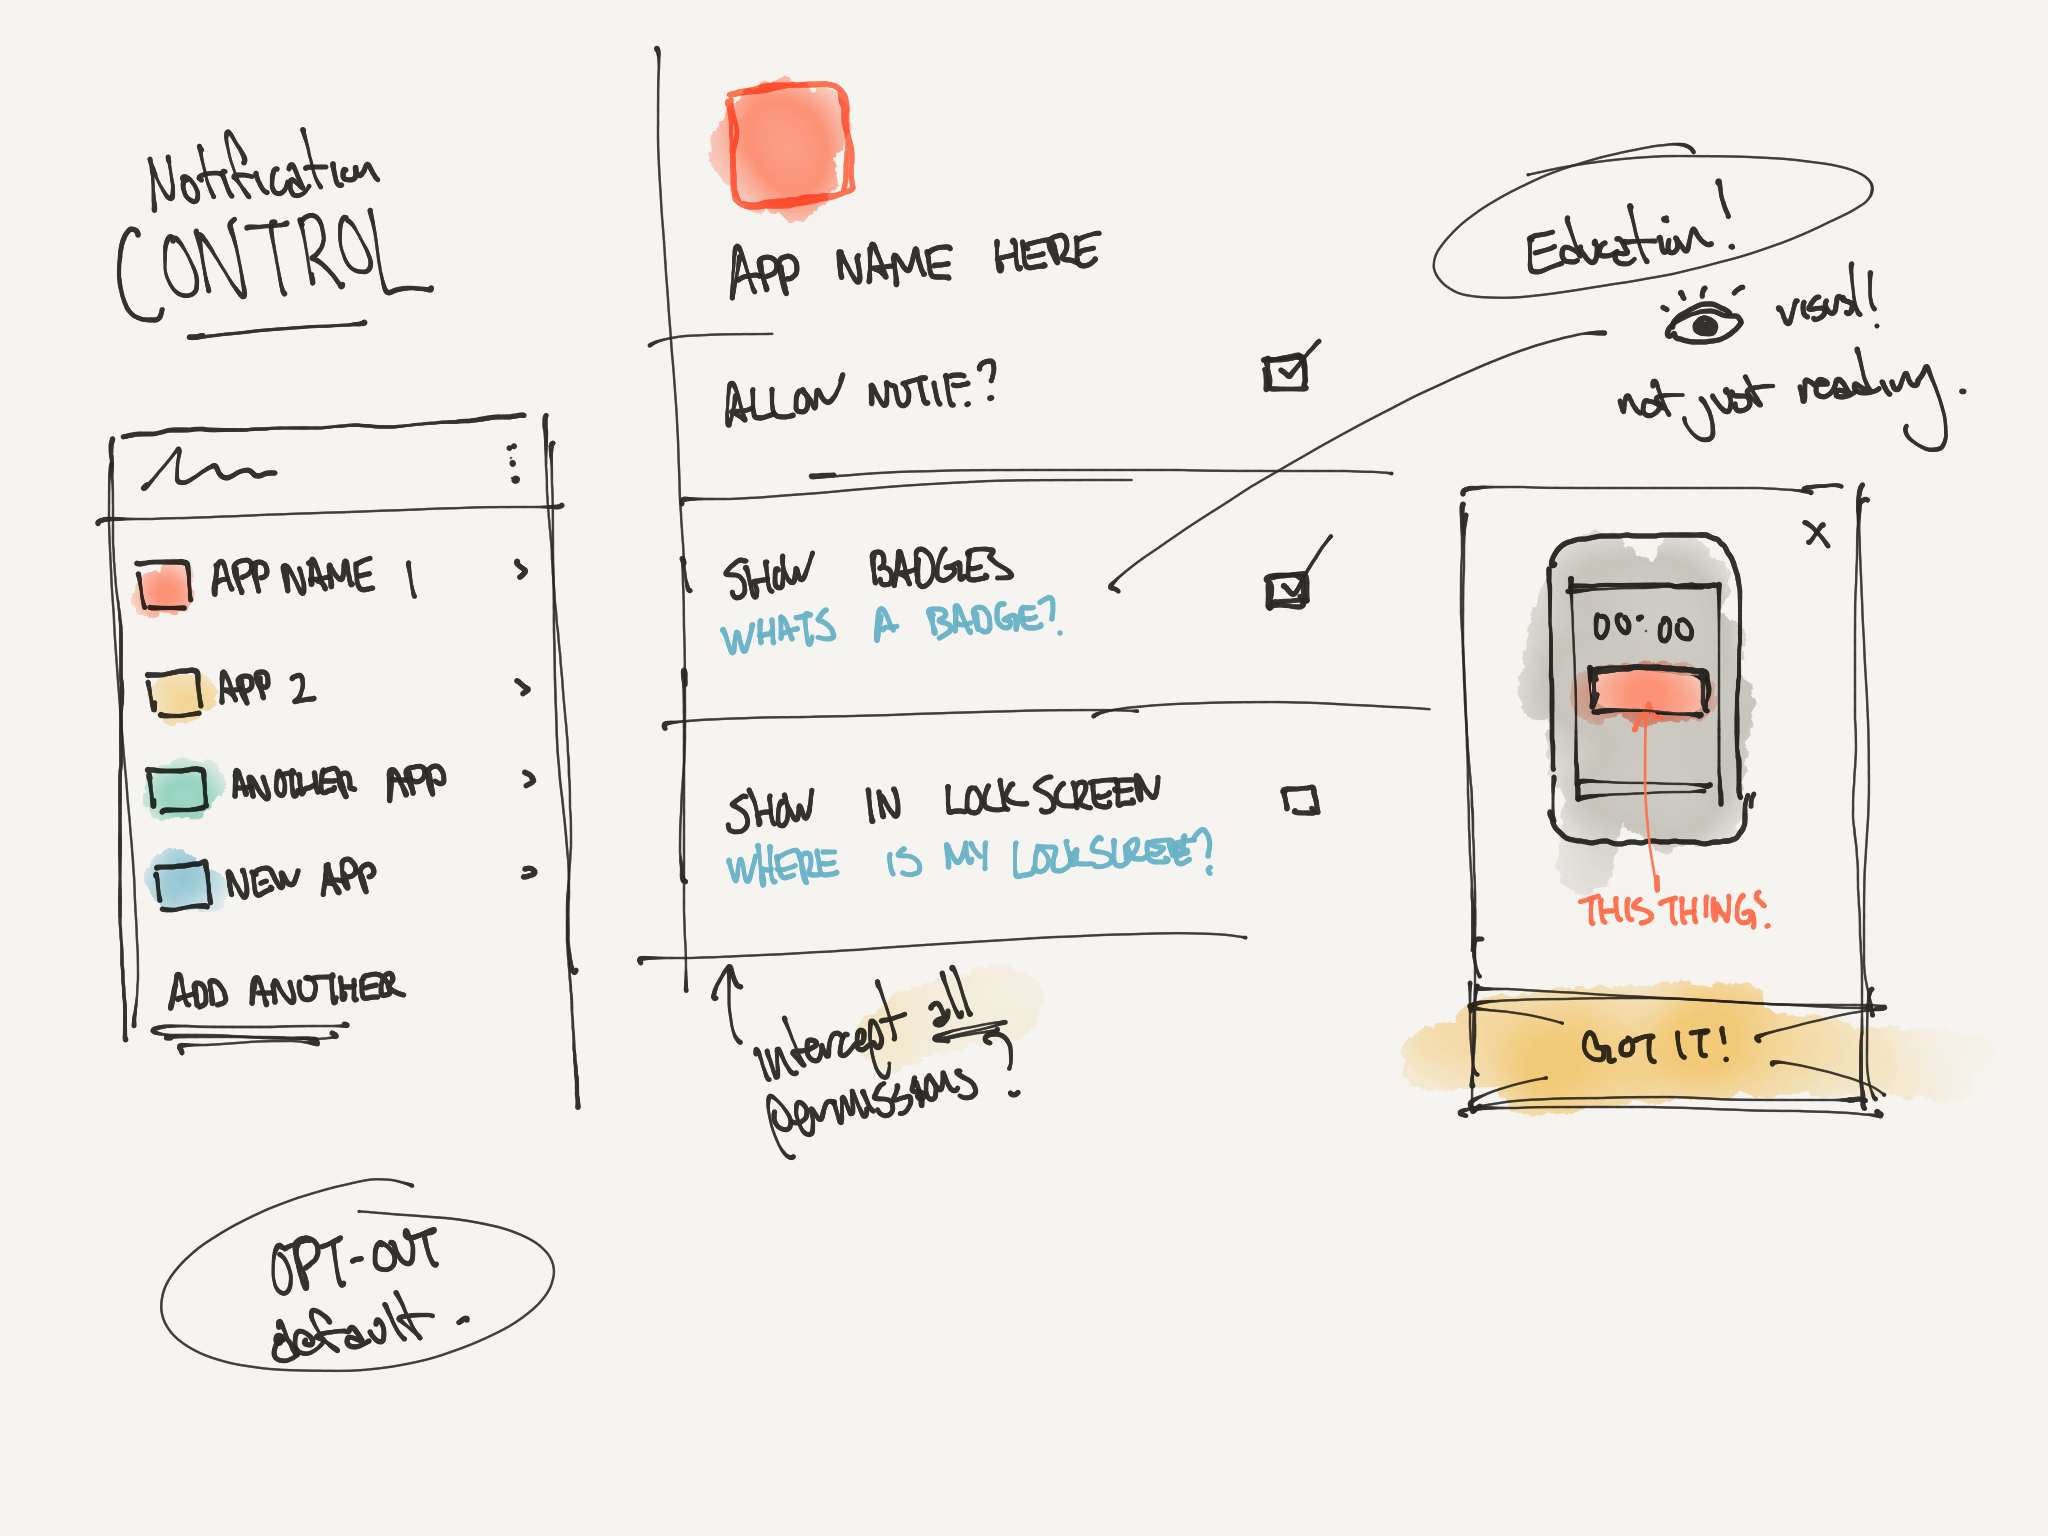 Notification
CONTROL
APP NAME 1
APP 2
ANOTHER APP
NEW APP
ADD ANOTHER
OPT-OUT
default.
APP NAME HERE
ALLOW NOTIF.?
SHOW BADGES
WHATS A BADGE?
SHOW IN LOCKSCREEN
WHERE IS MY LOCKSCREEN?
Intercept all
permissions?
Education!
visual!
not just reading.
X
00:00
THIS THING?
GOT IT!